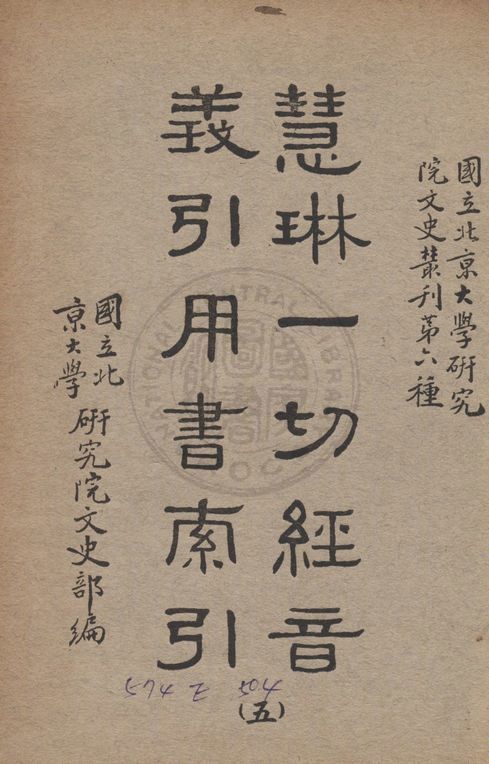 國立北京大學研究
院文史叢刊第六種
慧琳一切經音
義引用書索引
(五)
國立北
京大學
研究院文史部編
574 Z 504